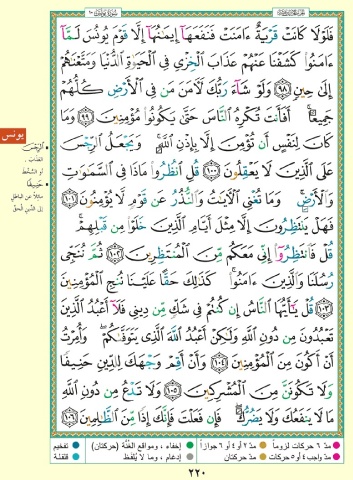 فَلَوْلَا كَانَتْ قَرْيَةٌ ءَامَنَتْ فَنَفَعَهَآ إِيمَٰنُهَآ إِلَّا قَوْمَ يُونُسَ لَمَّآ
ءَامَنُوا۟ كَشَفْنَا عَنْهُمْ عَذَابَ ٱلْخِزْىِ فِى ٱلْحَيَوٰةِ ٱلدُّنْيَا وَمَتَّعْنَٰهُمْ
إِلَىٰ حِينٍ ٩٨ وَلَوْ شَآءَ رَبُّكَ لَـَٔامَنَ مَن فِى ٱلْأَرْضِ كُلُّهُمْ
جَمِيعًا ۚ أَفَأَنتَ تُكْرِهُ ٱلنَّاسَ حَتَّىٰ يَكُونُوا۟ مُؤْمِنِينَ ٩٩ وَمَا
كَانَ لِنَفْسٍ أَن تُؤْمِنَ إِلَّا بِإِذْنِ ٱللَّهِ ۚ وَيَجْعَلُ ٱلرِّجْسَ
عَلَى ٱلَّذِينَ لَا يَعْقِلُونَ ١٠٠ قُلِ ٱنظُرُوا۟ مَاذَا فِى ٱلسَّمَٰوَٰتِ
وَٱلْأَرْضِ ۚ وَمَا تُغْنِى ٱلْـَٔايَٰتُ وَٱلنُّذُرُ عَن قَوْمٍ لَّا يُؤْمِنُونَ ١٠١
فَهَلْ يَنتَظِرُونَ إِلَّا مِثْلَ أَيَّامِ ٱلَّذِينَ خَلَوْا۟ مِن قَبْلِهِمْ ۚ
قُلْ فَٱنتَظِرُوٓا۟ إِنِّى مَعَكُم مِّنَ ٱلْمُنتَظِرِينَ ١٠٢ ثُمَّ نُنَجِّى
رُسُلَنَا وَٱلَّذِينَ ءَامَنُوا۟ ۚ كَذَٰلِكَ حَقًّا عَلَيْنَا نُنجِ ٱلْمُؤْمِنِينَ
١٠٣ قُلْ يَٰٓأَيُّهَا ٱلنَّاسُ إِن كُنتُمْ فِى شَكٍّ مِّن دِينِى فَلَآ أَعْبُدُ ٱلَّذِينَ
تَعْبُدُونَ مِن دُونِ ٱللَّهِ وَلَٰكِنْ أَعْبُدُ ٱللَّهَ ٱلَّذِى يَتَوَفَّىٰكُمْ ۖ وَأُمِرْتُ
أَنْ أَكُونَ مِنَ ٱلْمُؤْمِنِينَ ١٠٤ وَأَنْ أَقِمْ وَجْهَكَ لِلدِّينِ حَنِيفًا
وَلَا تَكُونَنَّ مِنَ ٱلْمُشْرِكِينَ ١٠٥ وَلَا تَدْعُ مِن دُونِ ٱللَّهِ
مَا لَا يَنفَعُكَ وَلَا يَضُرُّكَ ۖ فَإِن فَعَلْتَ فَإِنَّكَ إِذًا مِّنَ ٱلظَّٰلِمِينَ ١٠٦
يونس
الرِّجْسَ
العذاب
أو السُّخط
حَنِيفًا
مائلاً عن الباطل
إلى الدِّين الحقّ
مدّ ٦ حركات لزوماً مدّ ٢ أو ٤ أو ٦ جوازاً إخفاء، ومواقع الغُنَّة (حركتان) تفخيم
مدّ واجب ٤ أو ٥ حركات مدّ حركتان إدغام، وما لا يُلفظ قلقلة
٢٢٠